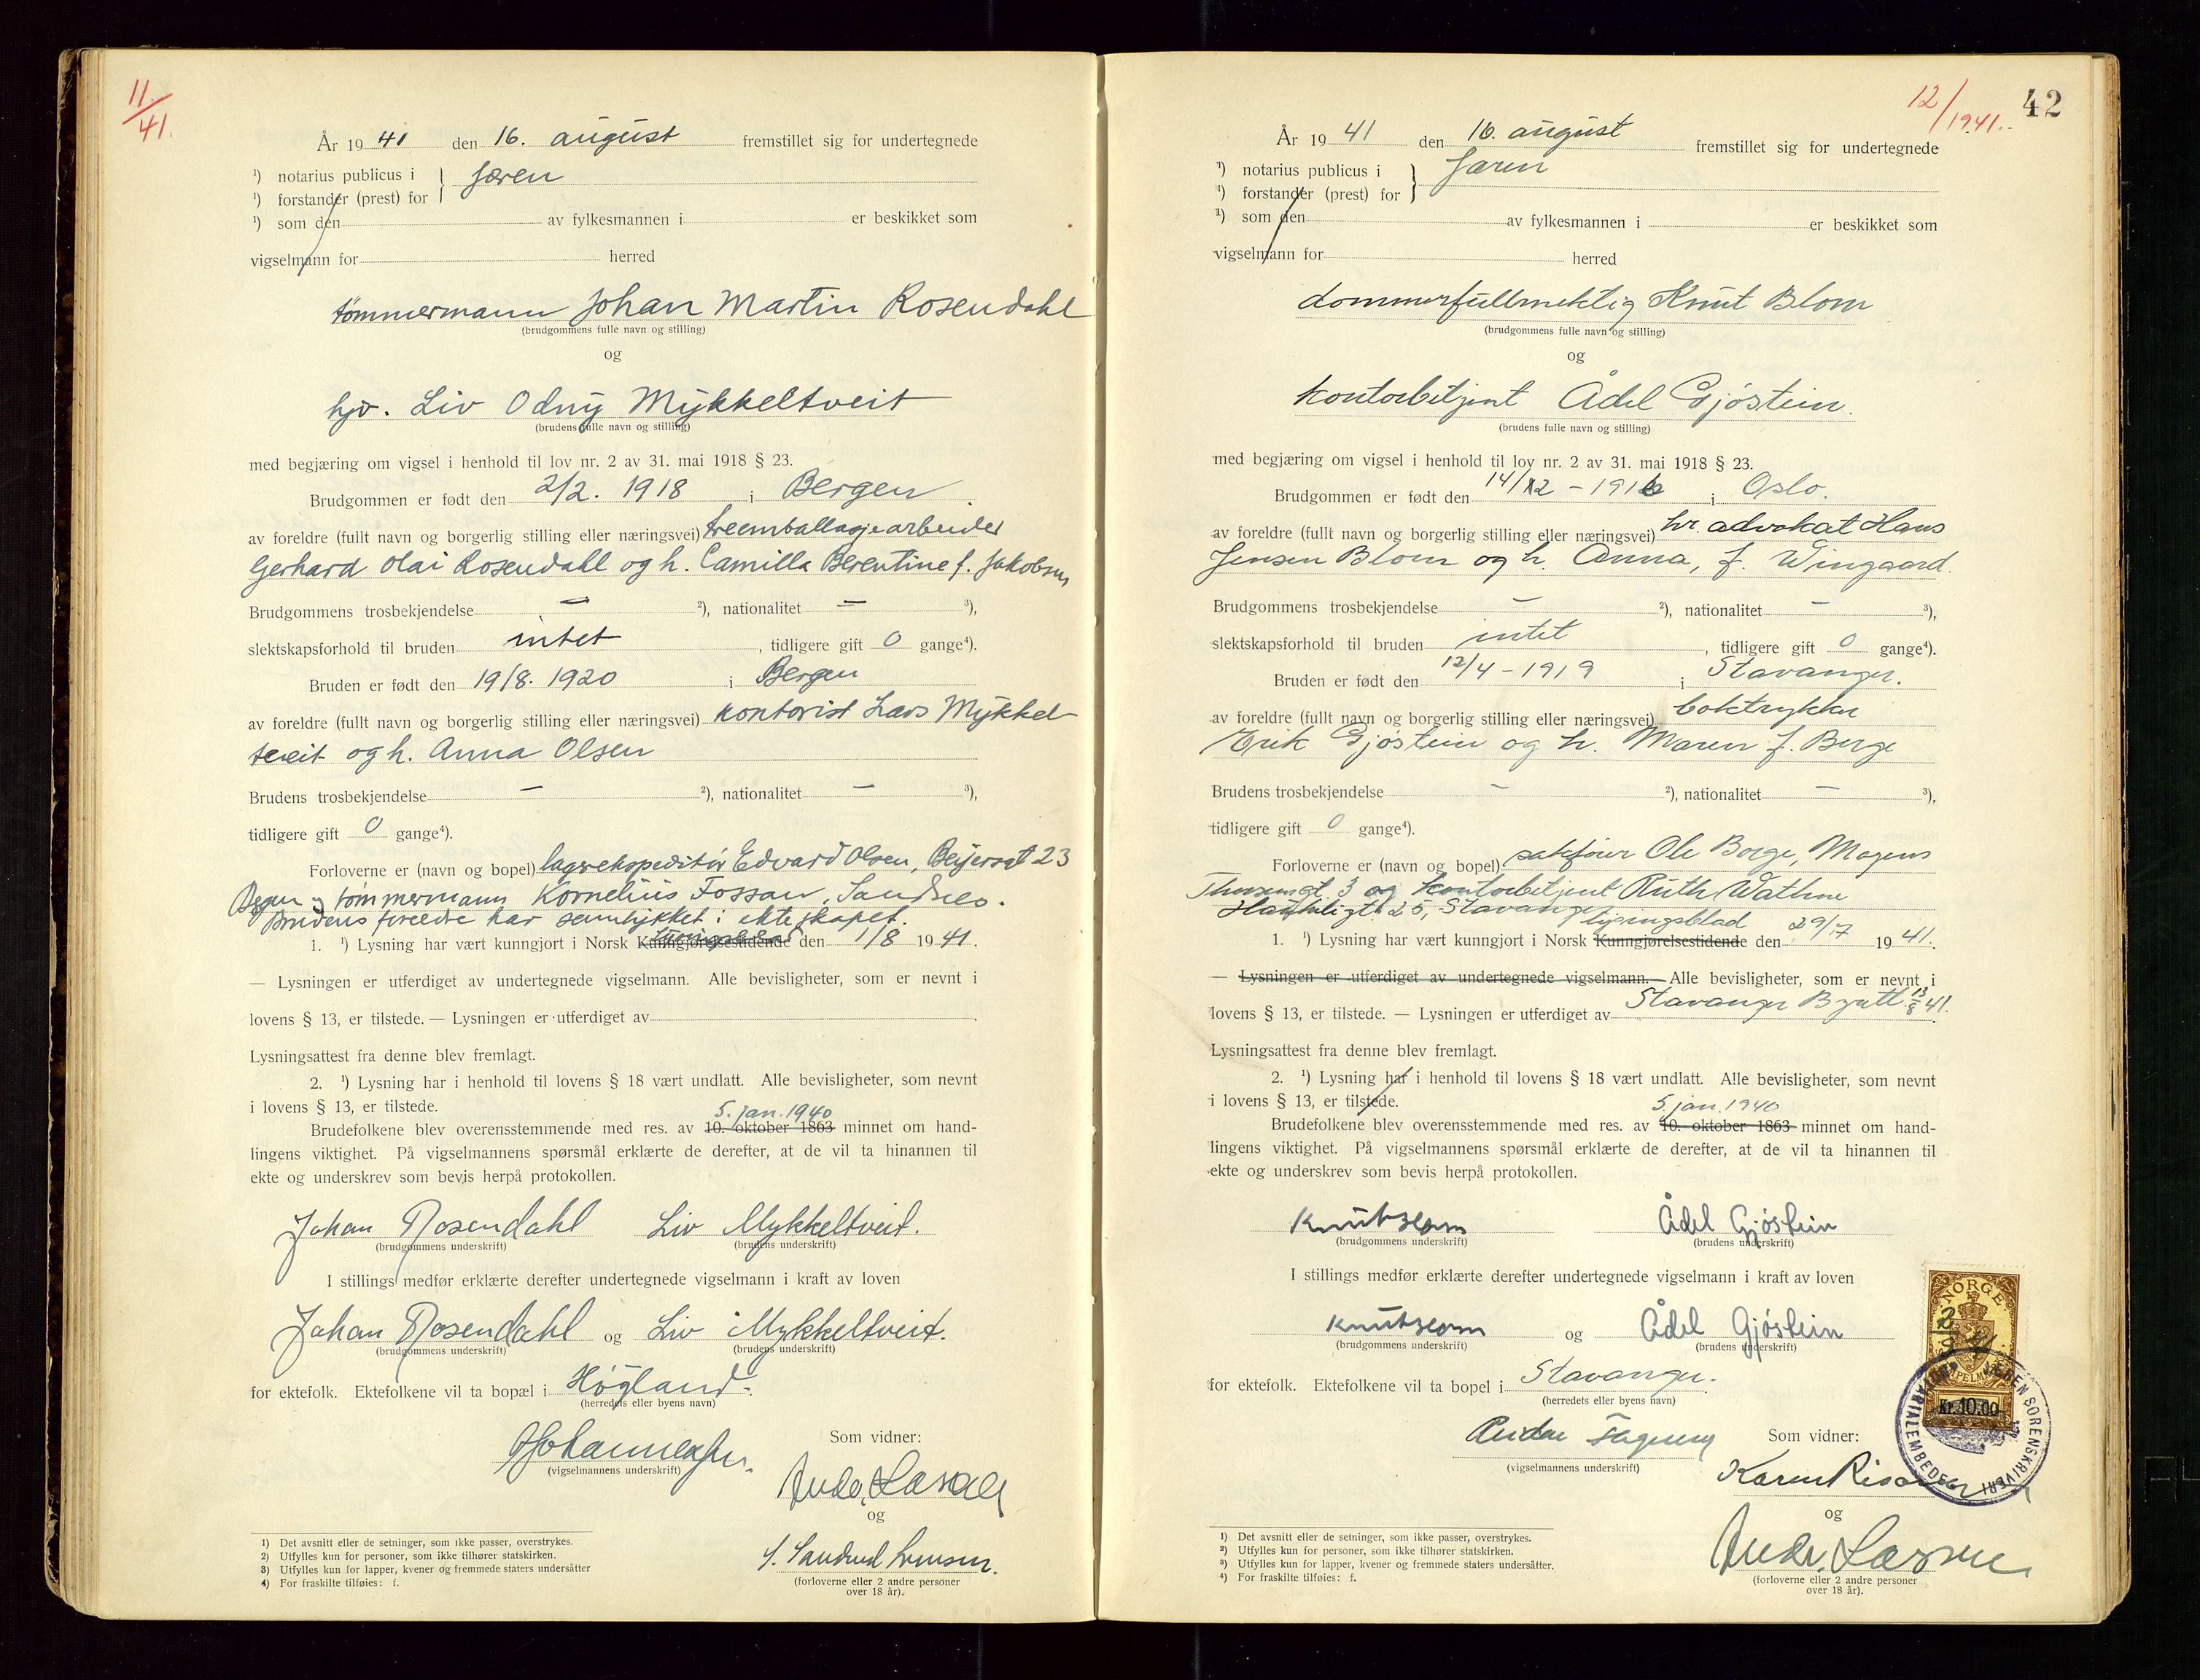 11./41.
År 1941 den 16. august fremstillet sig for undertegnede
¹) notarius publicus i } Jæren
¹) forstander (prest) for
¹) som den av fylkesmannen i er beskikket som
vigselmann for herred
tømmermann Johan Martin Rosendahl
(brudgommens fulle navn og stilling)
og
hjv. Liv Odny Mykkeltveit
(brudens fulle navn og stilling)
med begjæring om vigsel i henhold til lov nr. 2 av 31. mai 1918 § 23.
Brudgommen er født den 2/2. 1918 i Bergen
av foreldre (fullt navn og borgerlig stilling eller næringsvei) treemballasjearbeider
Gerhard Olai Rosendahl og h. Camilla Berentine f. Jakobsen
Brudgommens trosbekjendelse — ²), nationalitet — ³),
slektskapsforhold til bruden intet, tidligere gift 0 gange⁴).
Bruden er født den 19/8. 1920 i Bergen
av foreldre (fullt navn og borgerlig stilling eller næringsvei) kontorist Lars Mykkel
tveit og h. Anna Olsen
Brudens trosbekjendelse — ²), nationalitet — ³),
tidligere gift 0 gange⁴).
Forloverne er (navn og bopel) lagerekspeditør Edvard Olsen, Beyersgt 23
Bergen og tømmermann Kornelius Fossan, Sandnes.
Brudens foreldre har samtykket i ekteskapet.
1. ¹) Lysning har vært kunngjort i Norsk Kunngjørelsestidende den 1/8 1941.
— Lysningen er utferdiget av undertegnede vigselmann. Alle bevisligheter, som er nevnt i
lovens § 13, er tilstede. — Lysningen er utferdiget av
Lysningsattest fra denne blev fremlagt.
2. ¹) Lysning har i henhold til lovens § 18 vært undlatt. Alle bevisligheter, som nevnt
i lovens § 13, er tilstede.
5. jan. 1940
Brudefolkene blev overensstemmende med res. av 10. oktober 1863 minnet om hand-
lingens viktighet. På vigselmannens spørsmål erklærte de derefter, at de vil ta hinannen til
ekte og underskrev som bevis herpå protokollen.
Johan Rosendahl Liv Mykkeltveit.
(brudgommens underskrift) (brudens underskrift)
I stillings medfør erklærte derefter undertegnede vigselmann i kraft av loven
Johan Rosendahl og Liv Mykkeltveit.
(brudgommens underskrift) (brudens underskrift)
for ektefolk. Ektefolkene vil ta bopæl i Høyland.
(herredets eller byens navn)
(vigselmannens underskrift)
Som vidner:
og
(forloverne eller 2 andre personer
over 18 år).
¹) Det avsnitt eller de setninger, som ikke passer, overstrykes.
²) Utfylles kun for personer, som ikke tilhører statskirken.
³) Utfylles kun for lapper, kvener og fremmede staters undersåtter
⁴) For fraskilte tilføies: f.
12/1941. 42
År 1941 den 16. august fremstillet sig for undertegnede
¹) notarius publicus i } Jæren
¹) forstander (prest) for
¹) som den av fylkesmannen i er beskikket som
vigselmann for herred
dommerfullmektig Knut Blom
(brudgommens fulle navn og stilling)
og
kontorbetjent Ådel Gjøstein.
(brudens fulle navn og stilling)
med begjæring om vigsel i henhold til lov nr. 2 av 31. mai 1918 § 23.
Brudgommen er født den 14/12 - 1916 i Oslo.
av foreldre (fullt navn og borgerlig stilling eller næringsvei) hr. advokat Hans
Jensen Blom og h. Anna, f. Wingaard.
Brudgommens trosbekjendelse — ²), nationalitet — ³),
slektskapsforhold til bruden intet, tidligere gift 0 gange⁴).
Bruden er født den 12/4 - 1919 i Stavanger.
av foreldre (fullt navn og borgerlig stilling eller næringsvei) boktrykker
Erik Gjøstein og h. Maren f. Berge
Brudens trosbekjendelse — ²), nationalitet — ³),
tidligere gift 0 gange⁴).
Forloverne er (navn og bopel) sakfører Ole Borge, Mogens
Thorsensgt 3 og kontorbetjent Ruth Wathne
25, Stavanger
lysningsblad
1. ¹) Lysning har vært kunngjort i Norsk Kunngjørelsestidende den 29/7 1941.
— Lysningen er utferdiget av undertegnede vigselmann. — Alle bevisligheter, som er nevnt i
lovens § 13, er tilstede. — Lysningen er utferdiget av Stavanger Byrett 13/8 41.
Lysningsattest fra denne blev fremlagt.
2. ¹) Lysning har i henhold til lovens § 18 vært undlatt. Alle bevisligheter, som nevnt
i lovens § 13, er tilstede.
5. jan. 1940
Brudefolkene blev overensstemmende med res. av 10. oktober 1863 minnet om hand-
lingens viktighet. På vigselmannens spørsmål erklærte de derefter, at de vil ta hinannen til
ekte og underskrev som bevis herpå protokollen.
Knut Blom Ådel Gjøstein
(brudgommens underskrift) (brudens underskrift)
I stillings medfør erklærte derefter undertegnede vigselmann i kraft av loven
Knut Blom og Ådel Gjøstein
(brudgommens underskrift) (brudens underskrift)
for ektefolk. Ektefolkene vil ta bopel i Stavanger.
(herredets eller byens navn)
(vigselmannens underskrift)
Som vidner:
Karen
og
(forloverne eller 2 andre personer
over 18 år).
NORGE
Kr. 10.00
JÆREN SORENSKRIVERI
¹) Det avsnitt eller de setninger, som ikke passer, overstrykes.
²) Utfylles kun for personer, som ikke tilhører statskirken.
³) Utfylles kun for lapper, kvener og fremmede staters undersåtter.
⁴) For fraskilte tilføies: f.